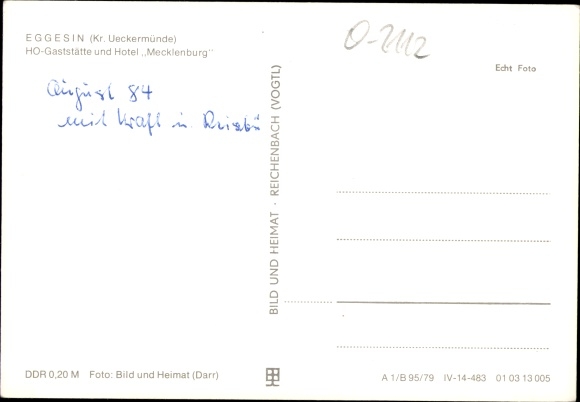 EGGESIN (Kr. Ueckermünde)
HO-Gaststätte und Hotel „Mecklenburg"
O-2112
Echt Foto
August 84
mit Kraft in
BILD UND HEIMAT · REICHENBACH (VOGTL)
DDR 0,20 M Foto: Bild und Heimat (Darr)
A 1/B 95/79 IV-14-483 01 03 13 005